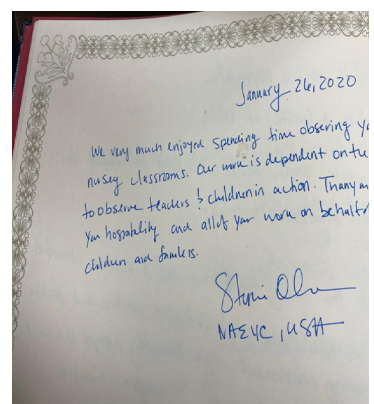 January 26, 2020
We very much enjoyed spending time obsering yo
nusey classrooms. Our work is dependent on the
to observe teachers & children in action. Thany
your hospitality and all of your work on behalf o
children and families.
NAEYC, USA